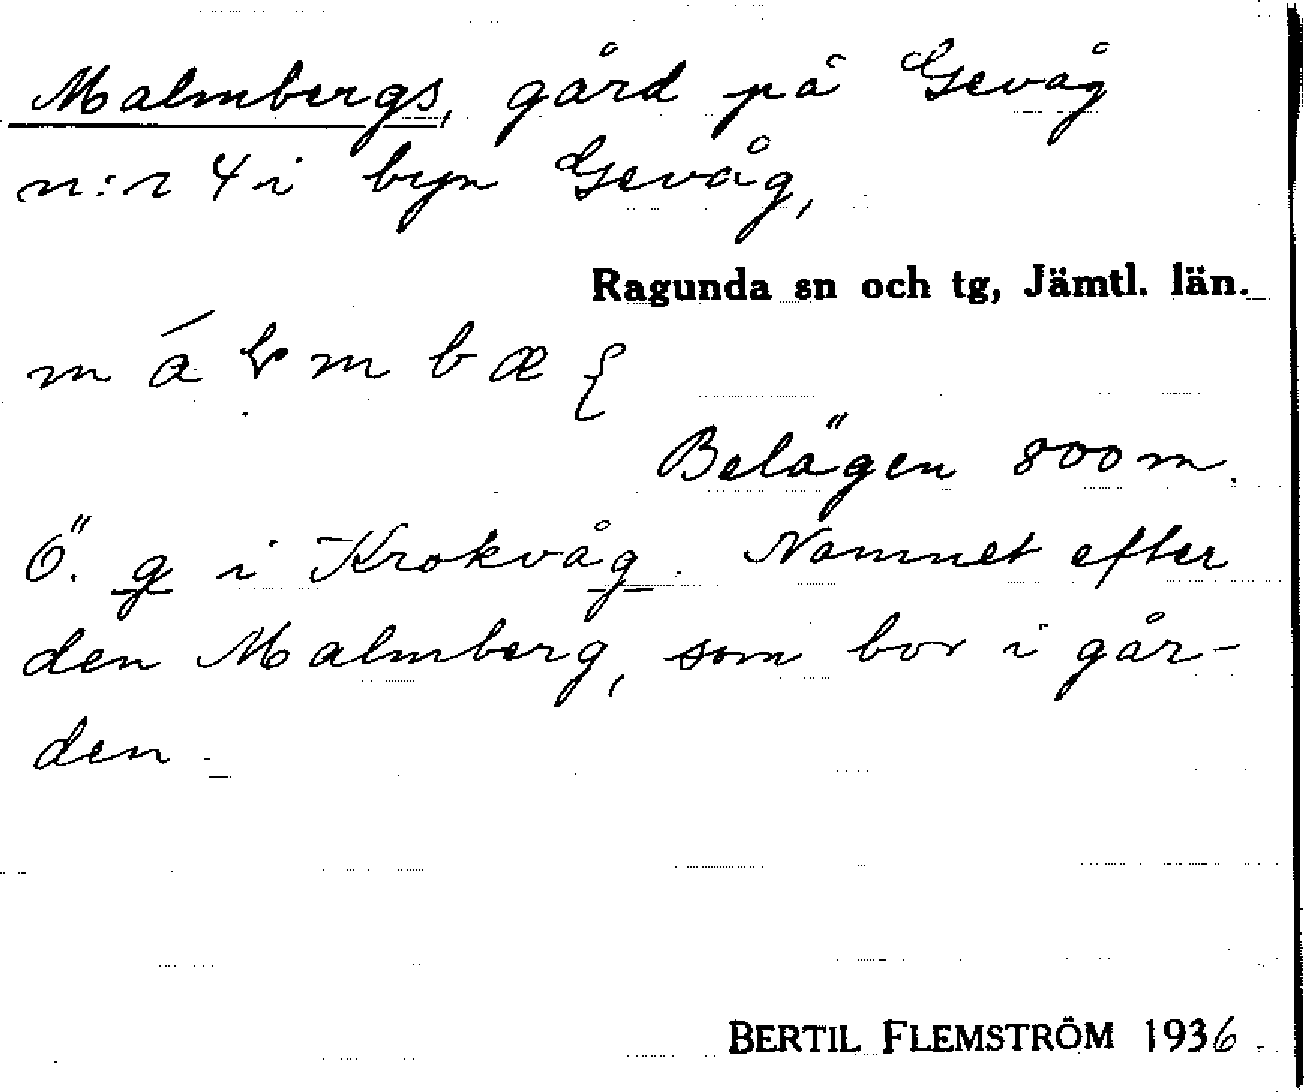 Malmbergs, gård på Gevåg
n:r 4 i byn Gevåg,
Ragunda sn och tg, Jämtl. län.
Belägen 800 m.
Ö. g i Krokvåg. Namnet efter
den Malmberg, som bor i går-
den.
BERTIL FLEMSTRÖM 1936